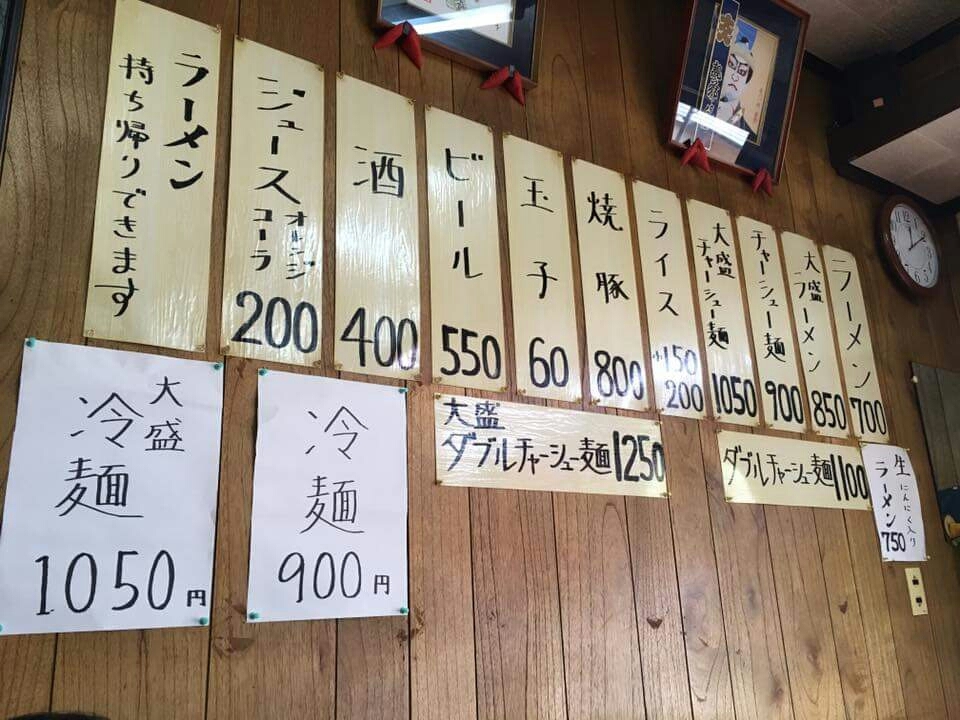 ラーメン
700
大盛
ラーメン
850
チャーシュー麺
900
大盛
チャーシュー麺
1050
ライス
小150
200
焼豚
800
玉子
60
ビール
550
酒
400
ジュース
オレンジ
コーラ
200
ラーメン
持ち帰りできます
生にんにく入り
ラーメン
750
ダブルチャーシュー麺1100
大盛
ダブルチャーシュー麺1250
冷麺
900円
大盛
冷麺
1050円